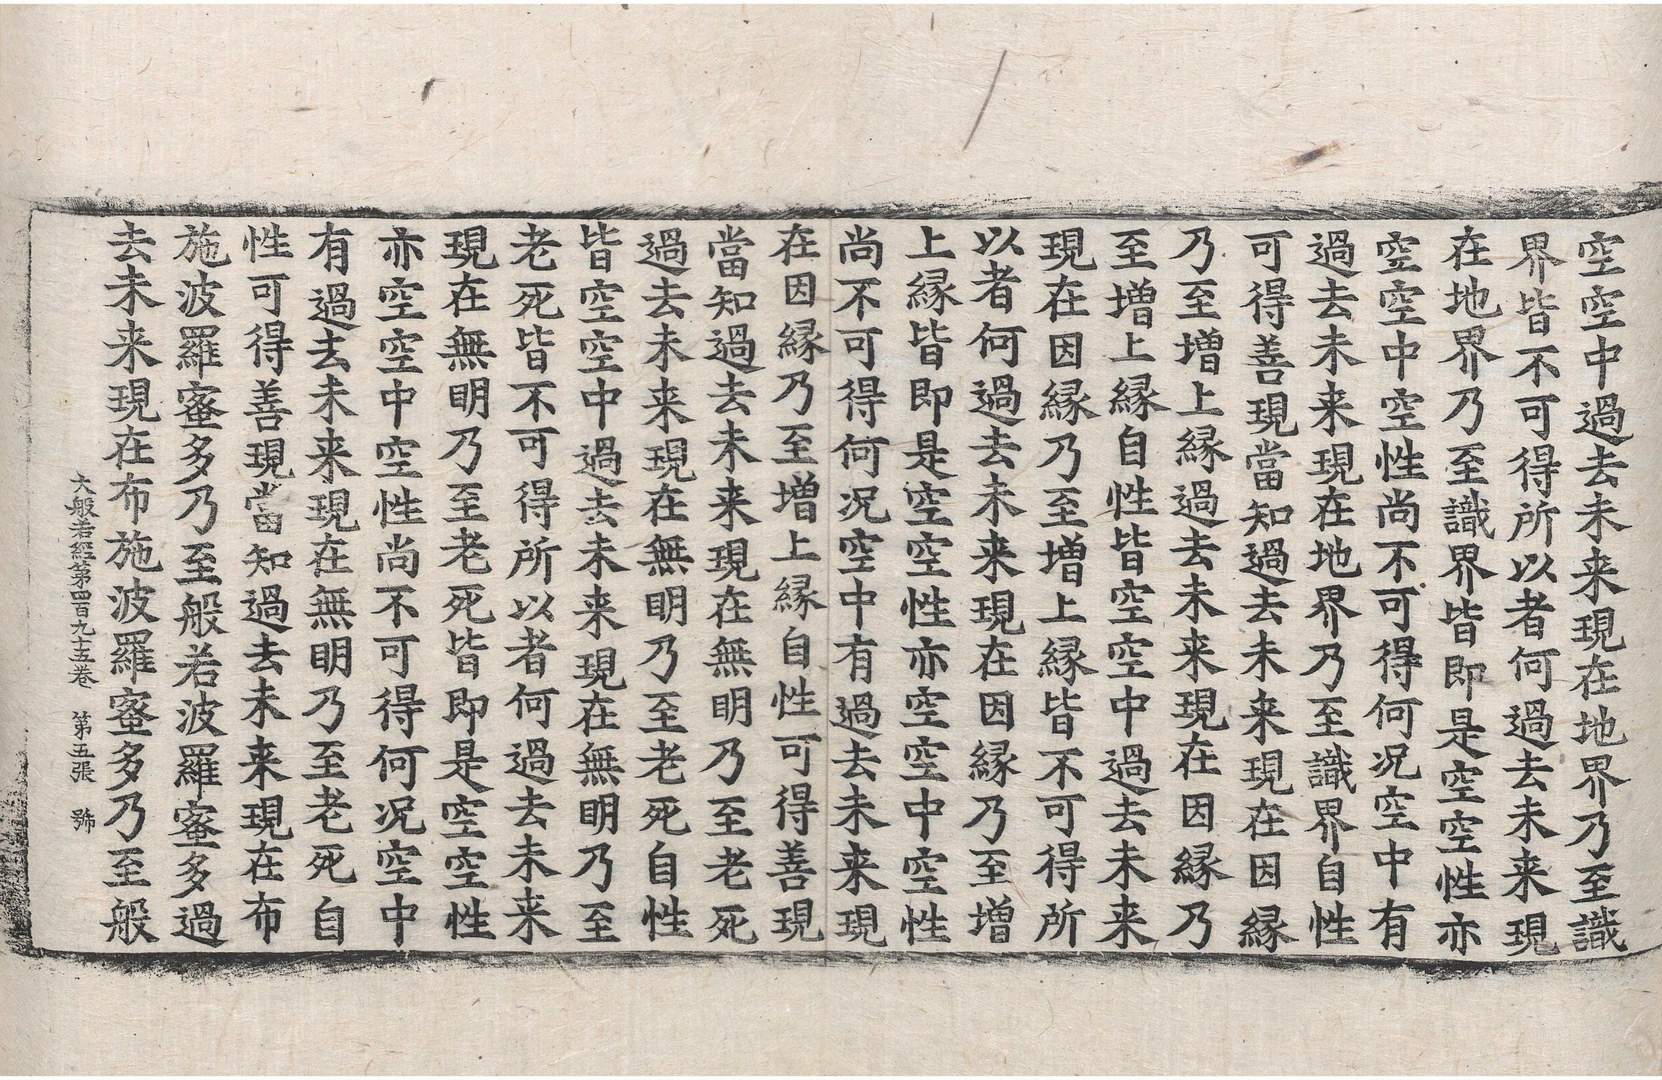 空空中過去未来現在地界乃至識
界皆不可得所以者何過去未来現
在地界乃至識界皆即是空空性亦
空空中空性尚不可得何况空中有
過去未来現在地界乃至識界自性
可得善現當知過去未来現在因縁
乃至増上縁過去未来現在因縁乃
至増上縁自性皆空空中過去未来
現在因縁乃至増上縁皆不可得所
以者何過去未来現在因縁乃至増
上縁皆即是空空性亦空空中空性
尚不可得何况空中有過去未来現
在因縁乃至増上縁自性可得善現
當知過去未来現在無明乃至老死
過去未来現在無明乃至老死自性
皆空空中過去未来現在無明乃至
老死皆不可得所以者何過去未来
現在無明乃至老死皆即是空空性
亦空空中空性尚不可得何况空中
有過去未来現在無明乃至老死自
性可得善現當知過去未来現在布
施波羅蜜多乃至般若波羅蜜多過
去未来現在布施波羅蜜多乃至般
大般若經第四百九十五卷 第五張 號